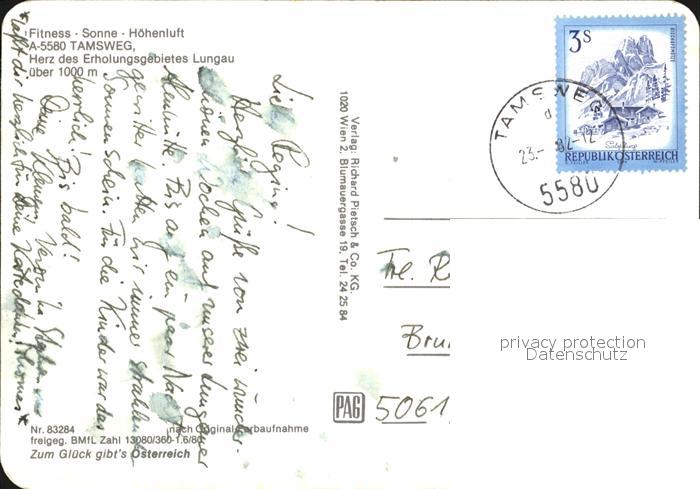 Fitness · Sonne · Höhenluft
A-5580 TAMSWEG,
Herz des Erholungsgebietes Lungau
über 1000 m
Liebe Regina!
Herzliche Grüße von zwei wunder-
schönen Wochen auf unserer Lungauer
Almhütte. Bis auf ein paar Nacht-
gewitter hatten wir immer strahlenden
Sonnenschein. Für die Kinder war das
herrlich! Bis bald!
Deine
läßt dir herzlich für Deine Karte danken! Thomas*
Nr. 83284
nach Originalfarbaufnahme
freigeg. BMfL Zahl 13080/360-1.6/80
Zum Glück gibt's Österreich
Verlag: Richard Pietsch & Co. KG.
1020 Wien 2, Blumauergasse 19, Tel. 24 25 84
PAG
3S
BISCHOFSMÜTZE
Salzburg
REPUBLIK ÖSTERREICH
TAMSWEG
d
23.- 82-12
5580
R
Bru
5061
privacy protection
Datenschutz